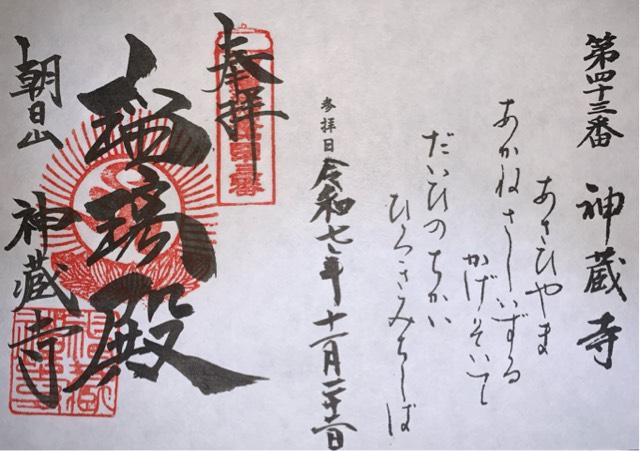 第四十三番 神蔵寺
あさひやま
あかねさしいずる
かげそいて
だいひのちかい
ひろきみちしば
参拝日 令和七年十一月
奉拝
瑠璃殿
朝日山 神蔵寺